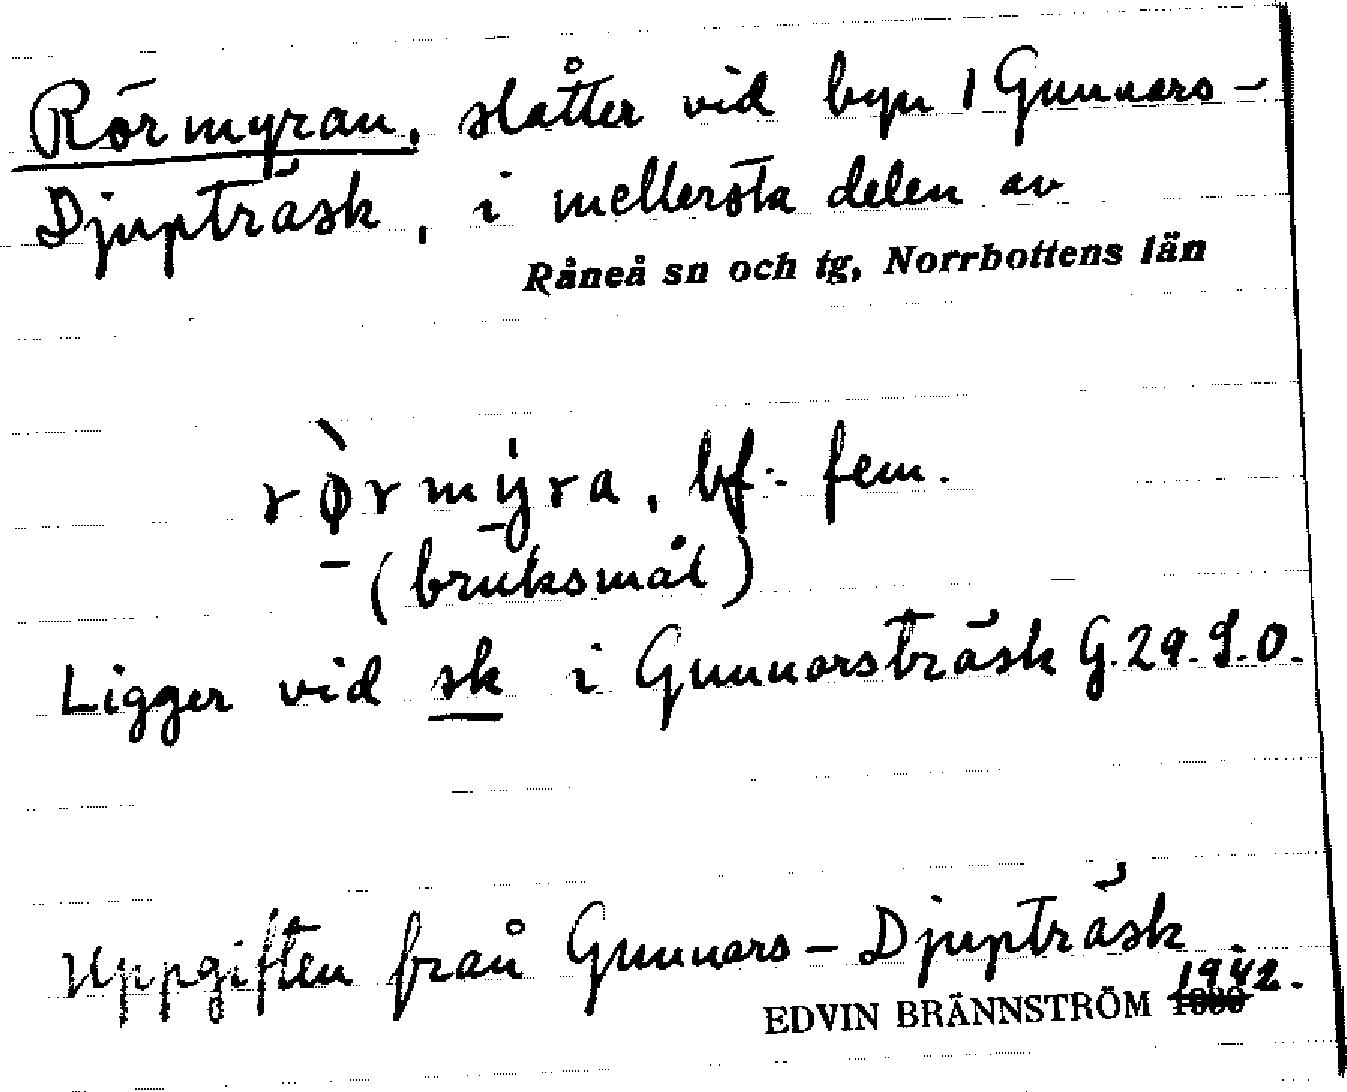 Rörmyran, slåtter vid byn 1 Gunnars-
Djupträsk, i mellersta delen av
Råneå sn och tg, Norrbottens län
rø̀rmýra, bf. fem.
(bruksmål)
Ligger vid sk i Gunnarsträsk G. 29. S.O.
Uppgiften från Gunnars-Djupträsk
EDVIN BRÄNNSTRÖM 1942.